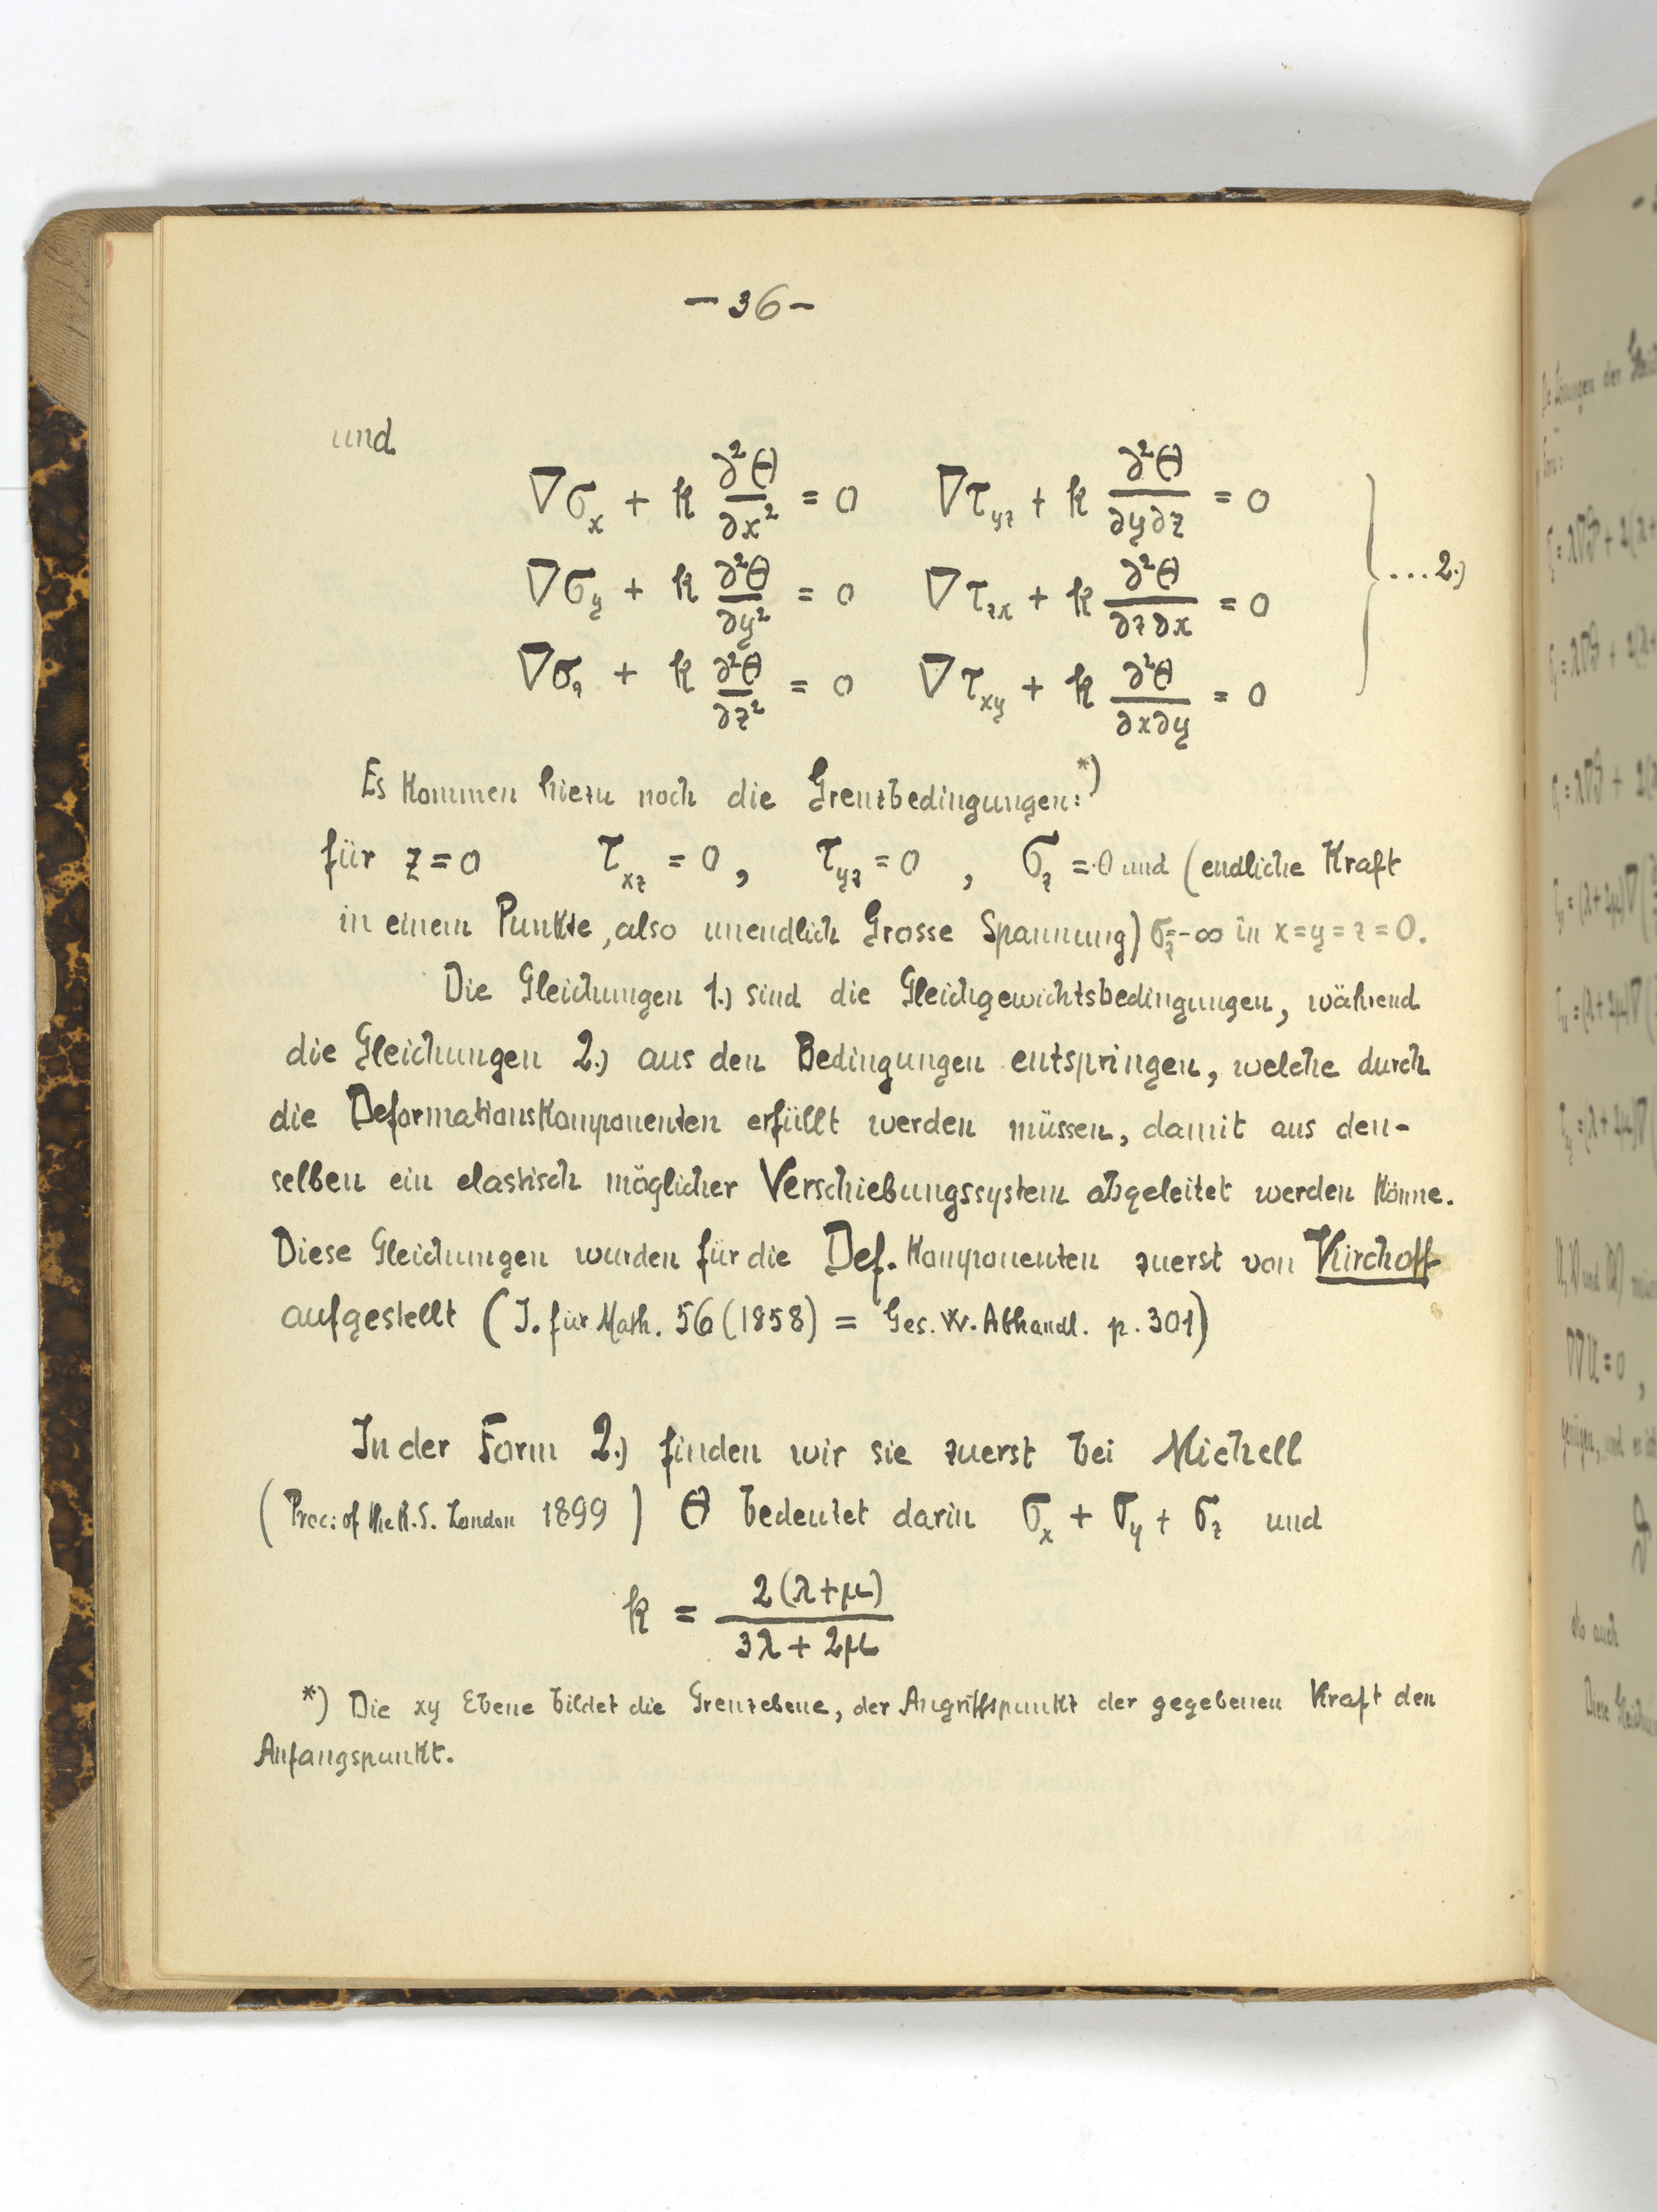 – 36 –
und
∇σ_x + k ∂²Θ/∂x² = 0   ∇τ_yz + k ∂²Θ/∂y∂z = 0
∇σ_y + k ∂²Θ/∂y² = 0   ∇τ_zx + k ∂²Θ/∂z∂x = 0   } ... 2.)
∇σ_z + k ∂²Θ/∂z² = 0   ∇τ_xy + k ∂²Θ/∂x∂y = 0
Es kommen hiezu noch die Grenzbedingungen:*)
für z = 0   τ_xz = 0 ,   τ_yz = 0 ,   σ_z = 0 und (endliche Kraft
in einem Punkte, also unendlich Grosse Spannung) σ_z = -∞ in x = y = z = 0.
Die Gleichungen 1.) sind die Gleichgewichtsbedingungen, während
die Gleichungen 2.) aus den Bedingungen entspringen, welche durch
die Deformationskomponenten erfüllt werden müssen, damit aus den-
selben ein elastisch möglicher Verschiebungssystem abgeleitet werden könne.
Diese Gleichungen wurden für die Def. Komponenten zuerst von Kirchoff
aufgestellt (J. für Math. 56 (1858) = Ges. W. Abhandl. p. 301)
In der Form 2.) finden wir sie zuerst bei Michell
(Proc: of the R. S. London 1899) Θ bedeutet darin σ_x + σ_y + σ_z und
k = 2(λ+μ)/(3λ + 2μ)
*) Die xy Ebene bildet die Grenzebene, der Angriffspunkt der gegebenen Kraft den
Anfangspunkt.